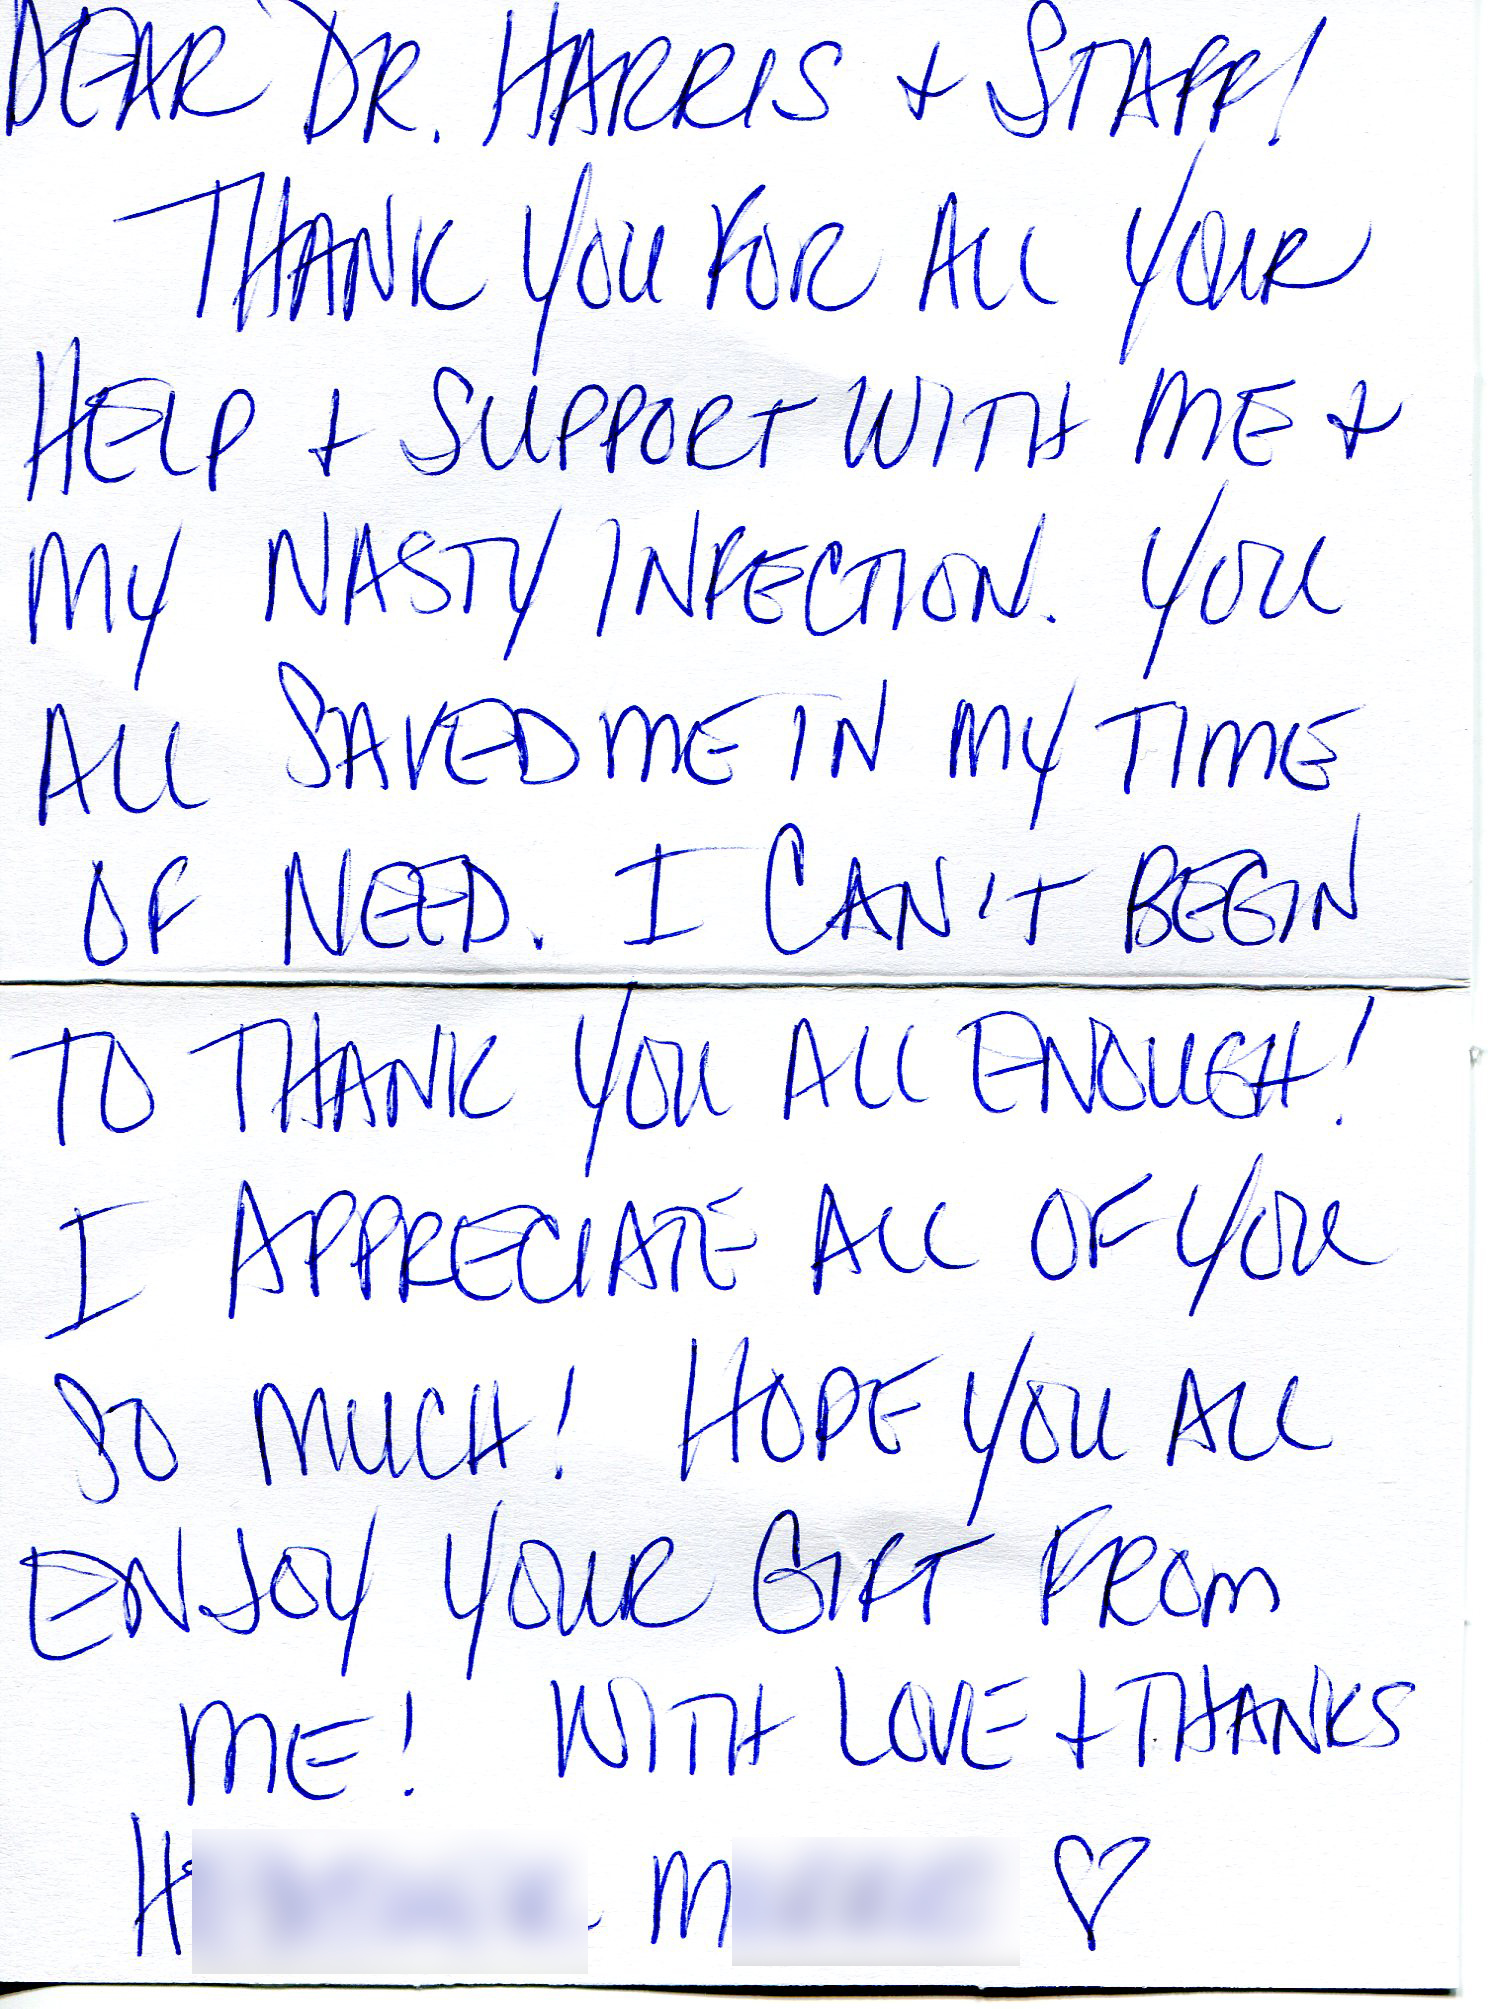 DEAR DR. HARRIS + STAFF!
THANK YOU FOR ALL YOUR
HELP + SUPPORT WITH ME +
MY NASTY INFECTION. YOU
ALL SAVED ME IN MY TIME
OF NEED. I CAN'T BEGIN
TO THANK YOU ALL ENOUGH!
I APPRECIATE ALL OF YOU
SO MUCH! HOPE YOU ALL
ENJOY YOUR GIFT FROM
ME! WITH LOVE + THANKS
H M ♡